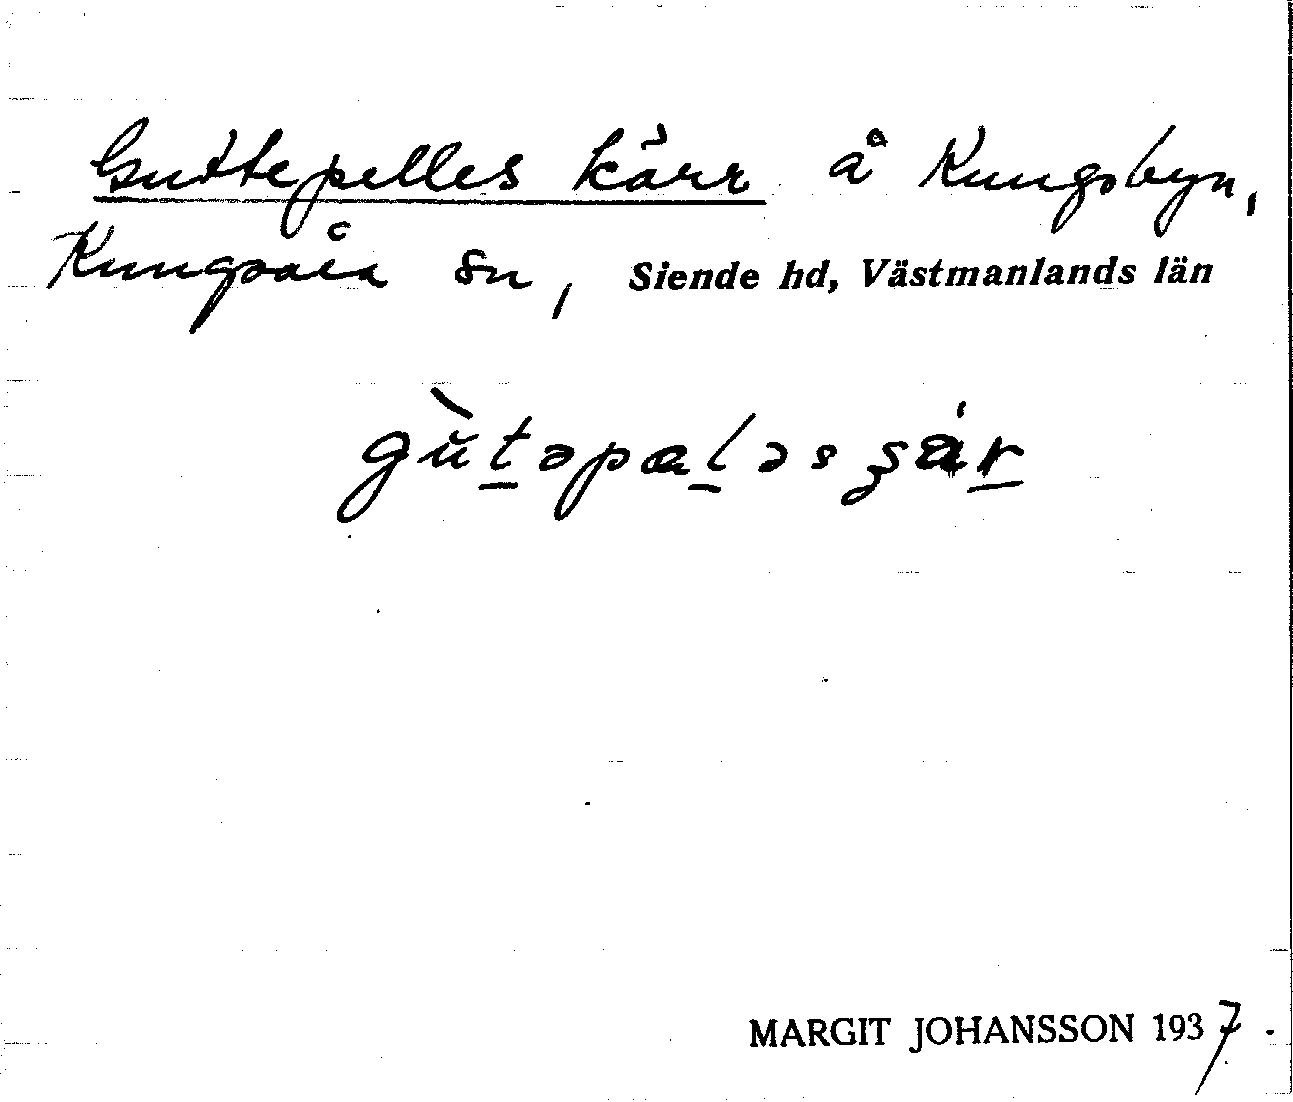 Guttepelles kärr å Kungsbyn,
Kungsåra sn, Siende hd, Västmanlands län
gùtəpæləs şär
MARGIT JOHANSSON 1937.